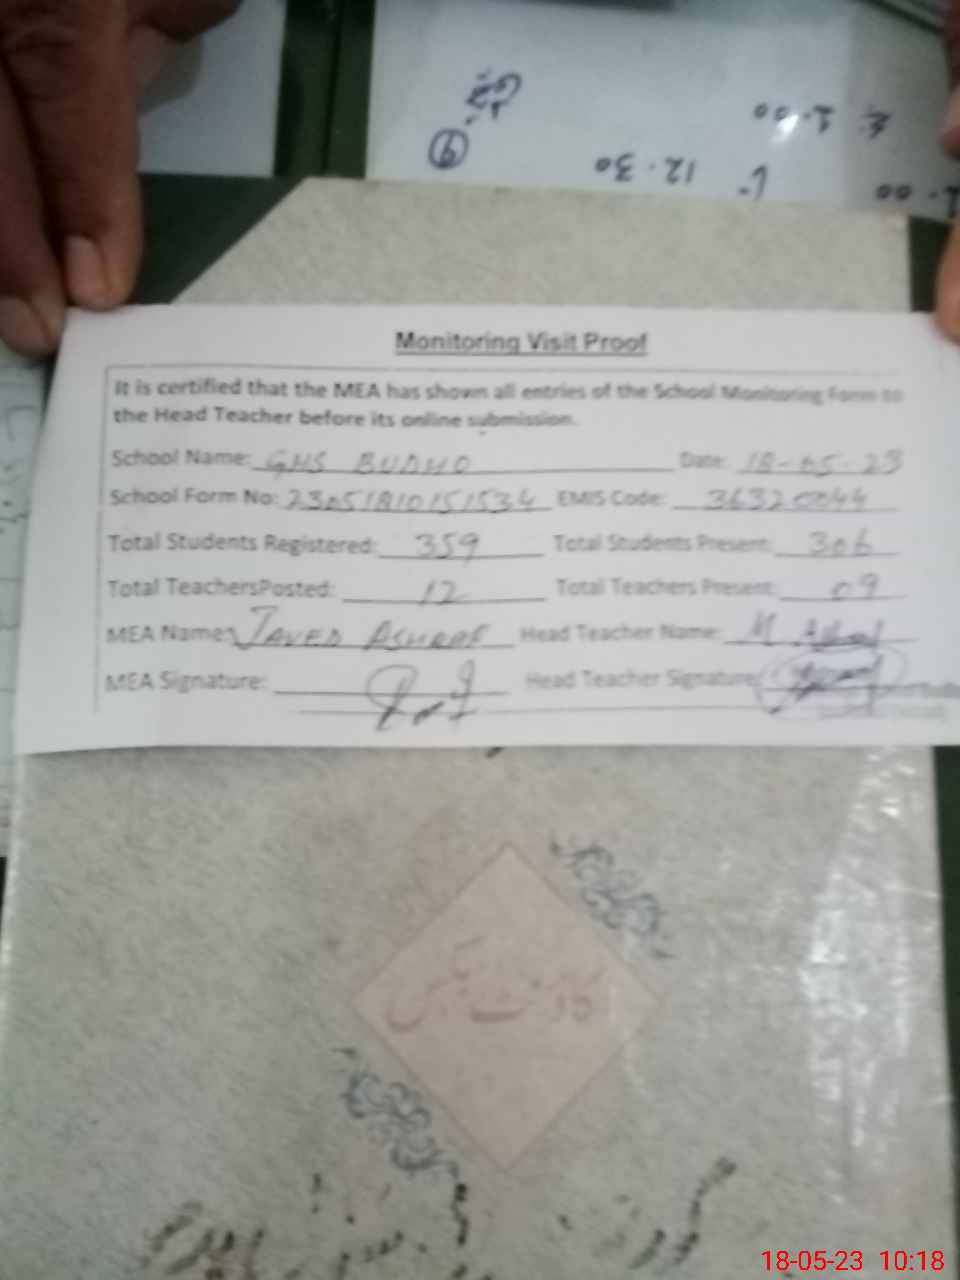 12.30
Monitoring Visit Proof
It is certified that the MEA has shown all entries of the School Monitoring Form to
the Head Teacher before its online submission.
School Name: GHS BUDHO Date: 18-05-23
School Form No: 23051810151534 EMIS Code: 36320044
Total Students Registered: 359 Total Students Present: 306
Total TeachersPosted: 12 Total Teachers Present: 09
MEA Name: JAVED ASHRAF Head Teacher Name: M
MEA Signature: Head Teacher Signature
18-05-23 10:18